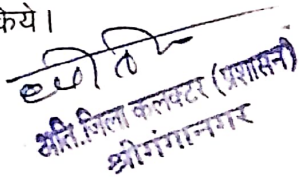 किये।
अति.जिला कलक्टर (प्रशासन)
श्रीगंगानगर